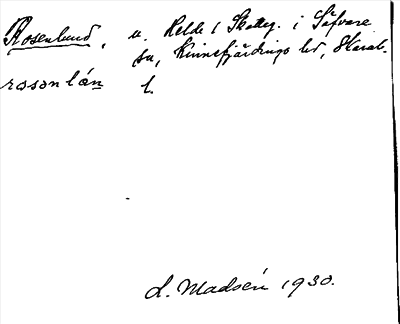 Rosenlund, u. Relde 1 Skatteg. i Säfvare
sn, Kinnefjärdings hd, Skarab.
rosənlán l.
L. Madsén 1930.